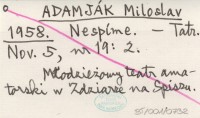 ADAMJÁK Miloslav
1958. Nesplme. – Tatr.
Nov. 5, nr 19: 2.
Młodzieżowy teatr ama-
torski w Zdziarze na Spiszu.
85/001/0732